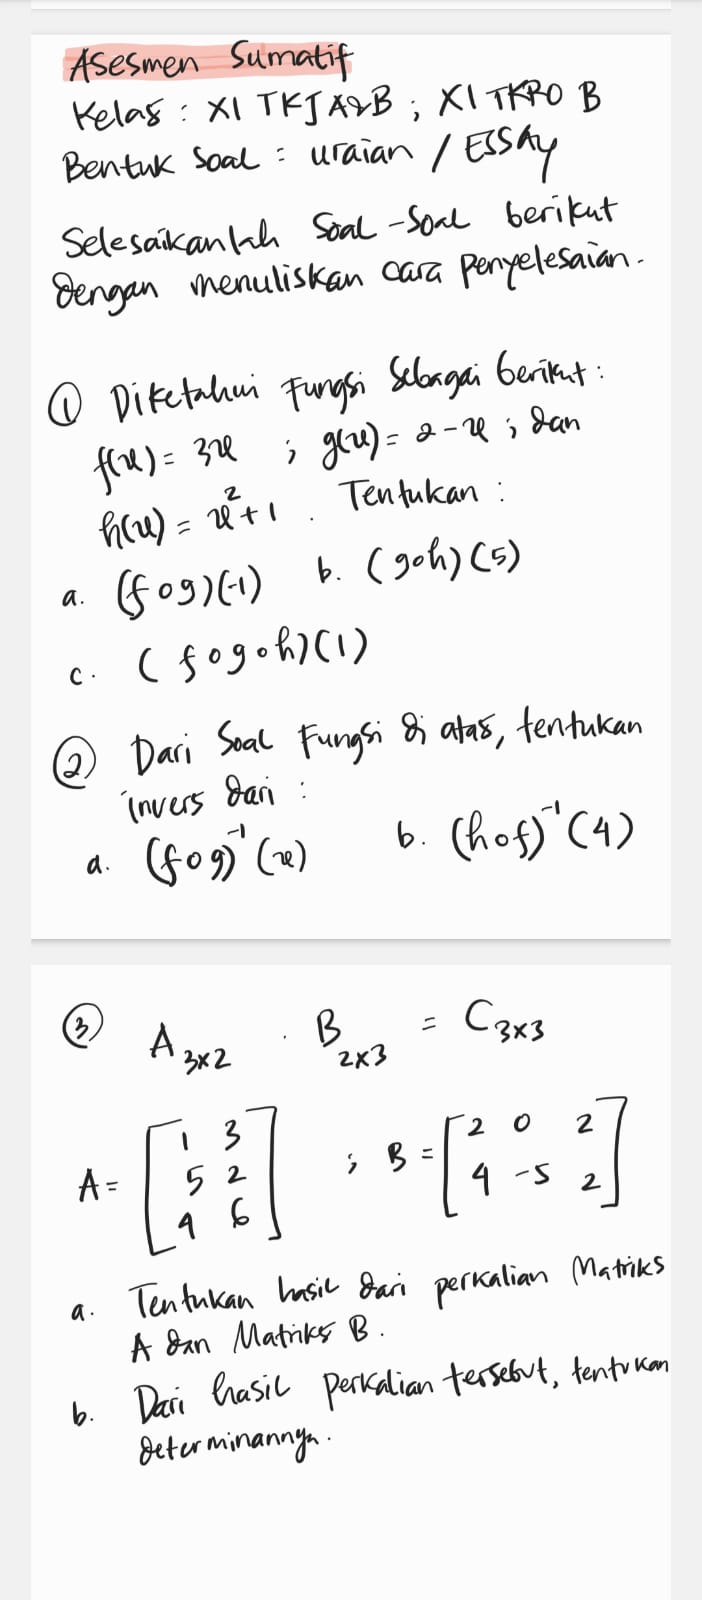 Asesmen Sumatif
Kelas : XI TKJ A&B ; XI TKRO B
Bentuk Soal : uraian / ESSAy
Selesaikanlah Soal-Soal berikut
dengan menuliskan cara penyelesaian.
① Diketahui Fungsi Sebagai berikut :
f(x) = 3x ; g(x) = 2-x ; dan
h(x) = x²+1 . Tentukan :
a. (f o g)(-1) b. (goh)(5)
c. (f o g o h)(1)
② Dari Soal Fungsi di atas, tentukan
invers dari :
a. (f o g)⁻¹(x) b. (h o f)⁻¹(4)
③ A 3x2 . B 2x3 = C 3x3
A = [1 3 ; B = [2 0 2
5 2 4 -5 2]
4 6]
a. Tentukan hasil dari perkalian Matriks
A dan Matriks B.
b. Dari hasil perkalian tersebut, tentukan
determinannya.